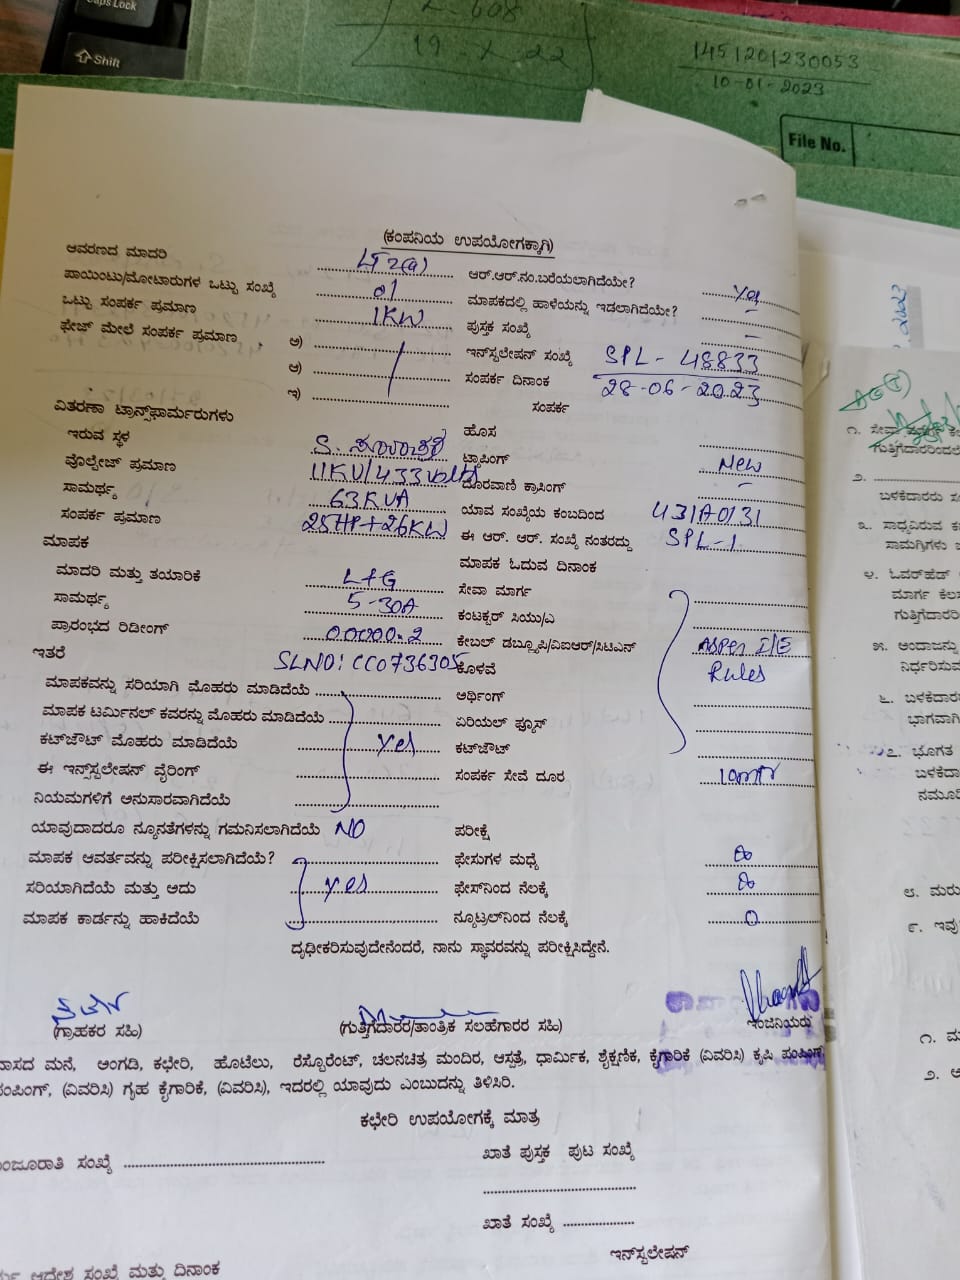 Caps Lock
Shift
L-608
19-7-22
1451201230053
10-01-2023
File No.
(ಕಂಪನಿಯ ಉಪಯೋಗಕ್ಕಾಗಿ)
ಆವರಣದ ಮಾದರಿ LT2(a) ಆರ್.ಆರ್.ನಂ.ಬರೆಯಲಾಗಿದೆಯೇ? Yes
ಪಾಯಿಂಟು/ಮೋಟಾರುಗಳ ಒಟ್ಟು ಸಂಖ್ಯೆ 01 ಮಾಪಕದಲ್ಲಿ ಹಾಳೆಯನ್ನು ಇಡಲಾಗಿದೆಯೇ? –
ಒಟ್ಟು ಸಂಪರ್ಕ ಪ್ರಮಾಣ 1KW ಪುಸ್ತಕ ಸಂಖ್ಯೆ –
ಫೇಜ್ ಮೇಲೆ ಸಂಪರ್ಕ ಪ್ರಮಾಣ ಅ) ಇನ್‌ಸ್ಟಲೇಷನ್ ಸಂಖ್ಯೆ SPL-48833
ಆ) ಸಂಪರ್ಕ ದಿನಾಂಕ 28-06-2023
ಇ) ಸಂಪರ್ಕ
ವಿತರಣಾ ಟ್ರಾನ್ಸ್‌ಫಾರ್ಮರುಗಳು
ಇರುವ ಸ್ಥಳ S. ಹೊಸ
ವೊಲ್ಟೇಜ್ ಪ್ರಮಾಣ 11KV/433volts ಟ್ಯಾಪಿಂಗ್ New
ಸಾಮರ್ಥ್ಯ 63KVA ದೂರವಾಣಿ ಕ್ರಾಸಿಂಗ್ –
ಸಂಪರ್ಕ ಪ್ರಮಾಣ 25HP+26KW ಯಾವ ಸಂಖ್ಯೆಯ ಕಂಬದಿಂದ 431A0131
ಮಾಪಕ ಈ ಆರ್. ಆರ್. ಸಂಖ್ಯೆ ನಂತರದ್ದು SPL-1
ಮಾಪಕ ಓದುವ ದಿನಾಂಕ
ಮಾದರಿ ಮತ್ತು ತಯಾರಿಕೆ L+G ಸೇವಾ ಮಾರ್ಗ
ಸಾಮರ್ಥ್ಯ 5-30A ಕಂಟಕ್ಟರ್ ಸಿಯು/ಎ
ಪ್ರಾರಂಭದ ರಿಡೀಂಗ್ 00000.2 ಕೇಬಲ್ ಡಬ್ಲ್ಯೂಪಿ/ಎಐಆರ್/ಸಿಟಿಎನ್ ASPer I/E
ಇತರೆ SLNO: CC0736305 ಕೊಳವೆ Rules
ಮಾಪಕವನ್ನು ಸರಿಯಾಗಿ ಮೊಹರು ಮಾಡಿದೆಯೆ ಅರ್ಥಿಂಗ್
ಮಾಪಕ ಟರ್ಮಿನಲ್ ಕವರನ್ನು ಮೊಹರು ಮಾಡಿದೆಯೆ ಏರಿಯಲ್ ಫ್ಯೂಸ್
ಕಟ್‌ಔಟ್ ಮೊಹರು ಮಾಡಿದೆಯೆ yes ಕಟ್‌ಔಟ್
ಈ ಇನ್‌ಸ್ಟಲೇಷನ್ ವೈರಿಂಗ್ ಸಂಪರ್ಕ ಸೇವೆ ದೂರ 10mtr
ನಿಯಮಗಳಿಗೆ ಅನುಸಾರವಾಗಿದೆಯೆ
ಯಾವುದಾದರೂ ನ್ಯೂನತೆಗಳನ್ನು ಗಮನಿಸಲಾಗಿದೆಯೆ NO ಪರೀಕ್ಷೆ
ಮಾಪಕ ಆವರ್ತವನ್ನು ಪರೀಕ್ಷಿಸಲಾಗಿದೆಯೆ? ಫೇಸುಗಳ ಮಧ್ಯೆ ∞
ಸರಿಯಾಗಿದೆಯೆ ಮತ್ತು ಅದು yes ಫೇಸ್‌ನಿಂದ ನೆಲಕ್ಕೆ ∞
ಮಾಪಕ ಕಾರ್ಡನ್ನು ಹಾಕಿದೆಯೆ ನ್ಯೂಟ್ರಲ್‌ನಿಂದ ನೆಲಕ್ಕೆ 0
ದೃಢೀಕರಿಸುವುದೇನೆಂದರೆ, ನಾನು ಸ್ಥಾವರವನ್ನು ಪರೀಕ್ಷಿಸಿದ್ದೇನೆ.
(ಗ್ರಾಹಕರ ಸಹಿ) (ಗುತ್ತಿಗೆದಾರರ/ತಾಂತ್ರಿಕ ಸಲಹೆಗಾರರ ಸಹಿ) ಇಂಜಿನಿಯರು
ವಾಸದ ಮನೆ, ಅಂಗಡಿ, ಕಛೇರಿ, ಹೊಟೆಲು, ರೆಸ್ಟೊರೆಂಟ್, ಚಲನಚಿತ್ರ ಮಂದಿರ, ಆಸ್ಪತ್ರೆ, ಧಾರ್ಮಿಕ, ಶೈಕ್ಷಣಿಕ, ಕೈಗಾರಿಕೆ (ವಿವರಿಸಿ) ಕೃಷಿ ಪಂಪಿಂಗ್
ಪಂಪಿಂಗ್, (ವಿವರಿಸಿ) ಗೃಹ ಕೈಗಾರಿಕೆ, (ವಿವರಿಸಿ), ಇದರಲ್ಲಿ ಯಾವುದು ಎಂಬುದನ್ನು ತಿಳಿಸಿರಿ.
ಕಛೇರಿ ಉಪಯೋಗಕ್ಕೆ ಮಾತ್ರ
ಮಂಜೂರಾತಿ ಸಂಖ್ಯೆ ಖಾತೆ ಪುಸ್ತಕ ಪುಟ ಸಂಖ್ಯೆ
ಖಾತೆ ಸಂಖ್ಯೆ
ಇನ್‌ಸ್ಟಲೇಷನ್
ಆದೇಶ ಸಂಖ್ಯೆ ಮತ್ತು ದಿನಾಂಕ
೧. ಸೇವಾ
ಗುತ್ತಿಗೆದಾರರಿಂದಲೆ
೨.
ಬಳಕೆದಾರರು
೩. ಸಾಧ್ಯವಿರುವ
ಸಾಮಗ್ರಿಗಳು
೪. ಓವರ್‌ಹೆಡ್
ಮಾರ್ಗ ಕೆಲಸ
ಗುತ್ತಿಗೆದಾರರಿ
೫. ಅಂದಾಜನ್ನು
ನಿರ್ಧರಿಸುವ
೬. ಬಳಕೆದಾರ
ಭಾಗವಾಗಿ
೭. ಭೂಗತ
ಬಳಕೆದಾ
ನಮೂದಿ
೮. ಮರು
೯. ಇವು
೧. ಮ
೨. ಅ